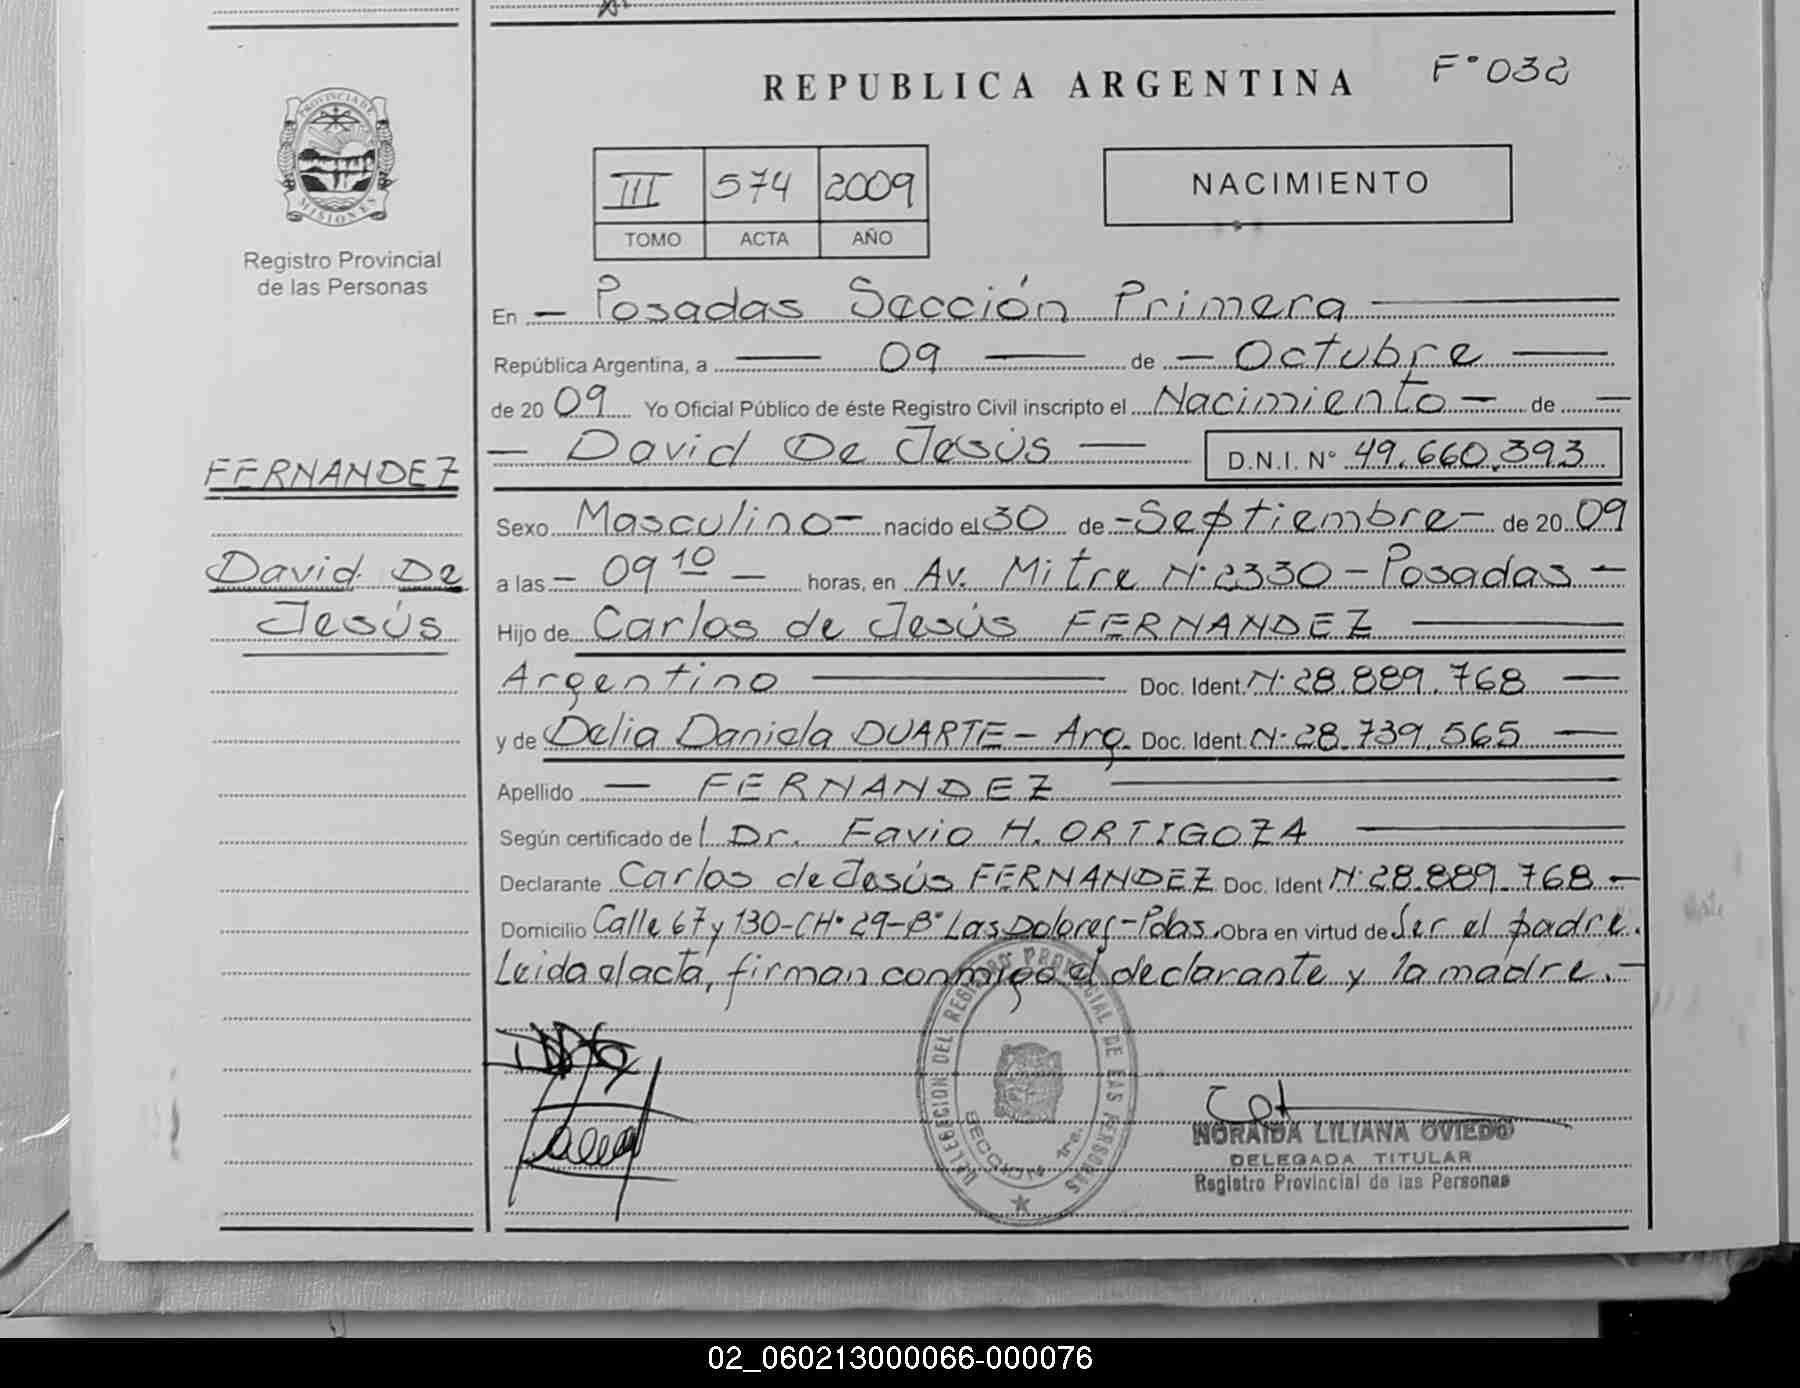 REPUBLICA ARGENTINA
F° 032
PROVINCIA DE
MISIONES
Registro Provincial
de las Personas
III 574 2009
TOMO ACTA AÑO
NACIMIENTO
En — Posadas Sección Primera —
República Argentina, a — 09 — de — Octubre —
de 20 09 Yo Oficial Público de éste Registro Civil inscripto el Nacimiento — de —
— David De Jesús — D.N.I. N° 49.660.393
FERNANDEZ
David De
Jesús
Sexo Masculino — nacido el 30 de — Septiembre — de 20 09
a las — 09 10 — horas, en Av. Mitre N° 2330 — Posadas —
Hijo de Carlos de Jesús FERNANDEZ —
Argentino — Doc. Ident. N° 28.889.768 —
y de Delia Daniela DUARTE — Arg. Doc. Ident. N° 28.739.565 —
Apellido — FERNANDEZ —
Según certificado del Dr. Favio H. ORTIGOZA —
Declarante Carlos de Jesús FERNANDEZ Doc. Ident N° 28.889.768 —
Domicilio Calle 67 y 130-CH° 29-B° Las Dolores-Pdas. Obra en virtud de Ser el padre.
Leida el acta, firman conmigo el declarante y la madre. —
DELEGACION DEL REGISTRO PROVINCIAL DE LAS PERSONAS
SECCION 1ra.
NORAIDA LILIANA OVIEDO
DELEGADA TITULAR
Registro Provincial de las Personas
02_060213000066-000076